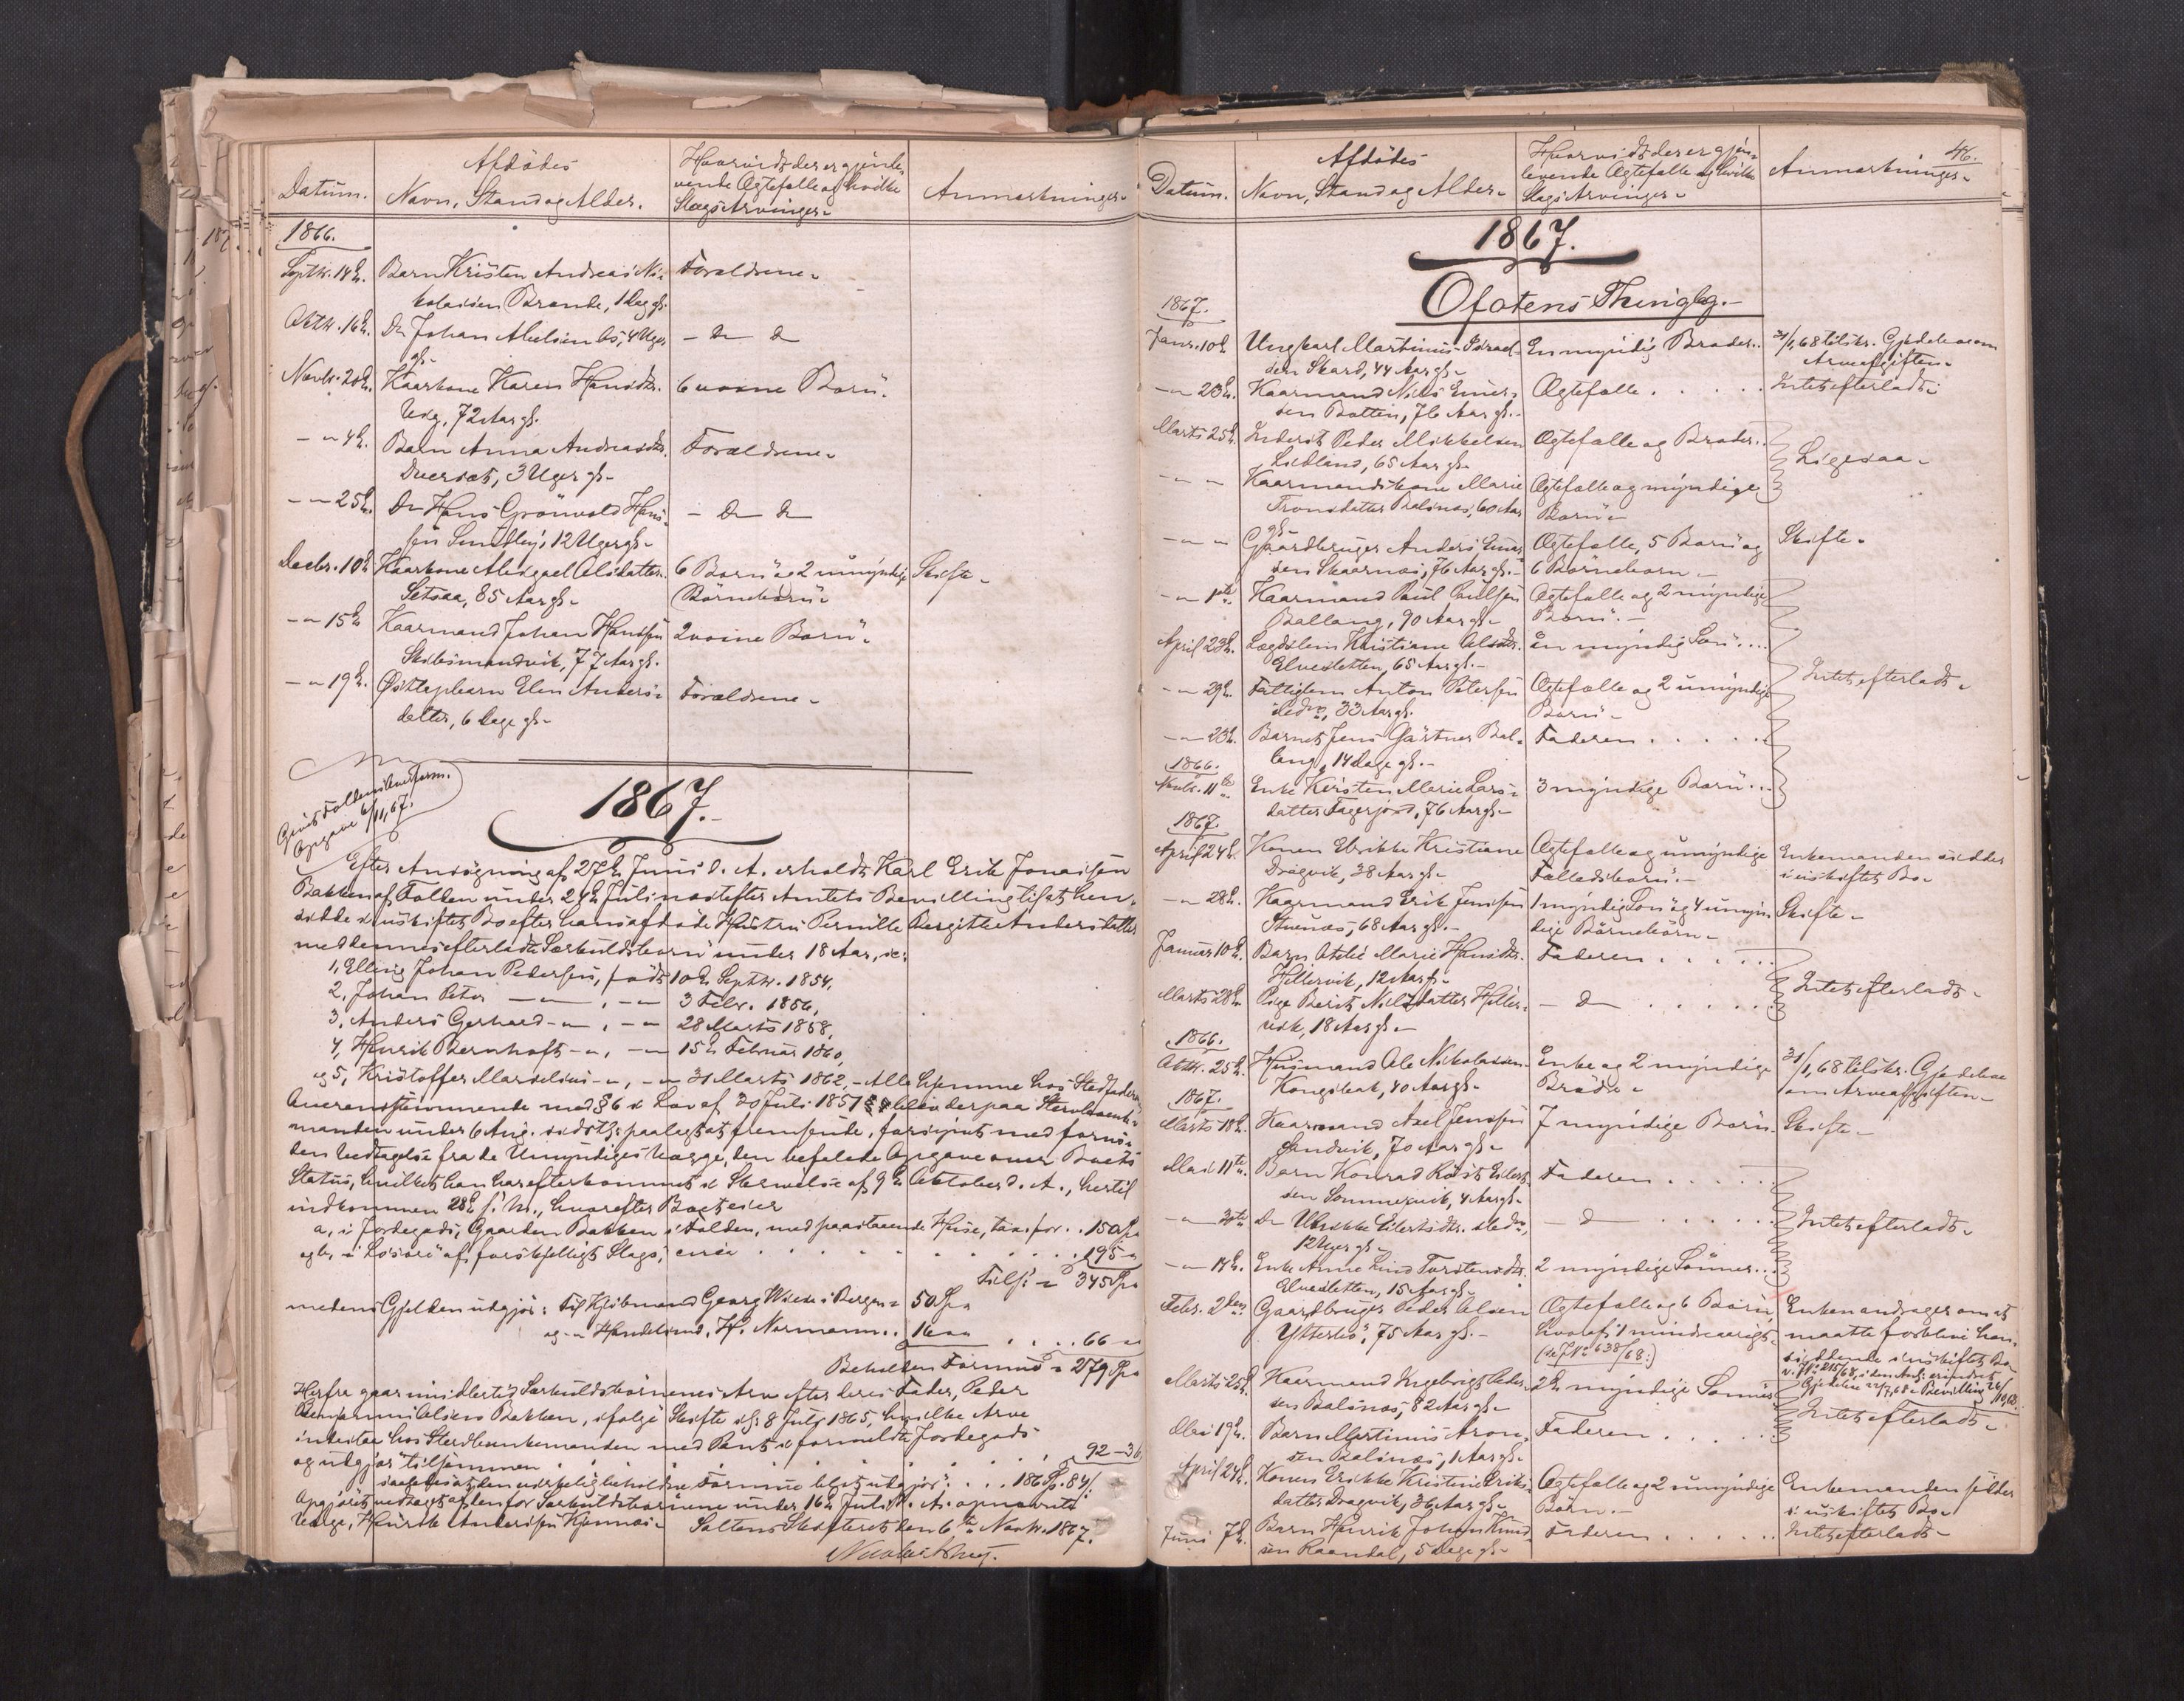 Datum.
Afdödes
Navn, Stand og Alder.
Hvorvidt der er gjenle-
vende Ægtefælle og hvilke
Slags Arvinger
Anmærkninger
1866.
Septbr. 14de.
Barn Kristen Andreas Ni-
kolaisen Brande, 1 Dag gl.
Forældrene
Oktbr. 16de.
Do Johan Abelsen Os, 4 Uger
gl.
- Do Do
Novbr. 20de.
Kaarkone Karen Hansdtr.
72 Aar gl.
6 voxne Börn.
- " 4de.
Barn Anna Andreasdtr.
3 Uger gl.
Forældrene
- " 25de.
Do Hans Grönvold Han-
sen 12 Uger gl.
- Do Do
Decbr. 10de
Kaarkone Abigael Olsdatter
Setsaa, 85 Aar gl.
6 Börn og 2 umyndige
Börnebörn
Skifte
- " 15de
Kaarmand Johan Hansen
Skibsmandvik, 77 Aar gl.
2 voxne Börn
- " 19de.
Elen Anders-
datter, 6 Dage gl.
Forældrene
Opgave 6/11, 67.
1867.
Efter Ansögning af 27de Juni d. A. erholdt Karl Erik Jonassen
Bakken af Folden under 24de Juli næstefter Amtets Bevilling til at hen-
sidde i uskiftet Bo efter hans afdöde Hustru Pernille Bergitte Andersdatter
med dennes efterladte Særkuldsbörn under 18 Aar, :
1, Elling Johan Pedersen, födt 10de Septbr. 1854,
2, Johan Peter - " - , - " 3 Febr. 1856,
3, Anders Gerhard - " , - " 28 Marts 1858,
4, Henrik Bernhoft - " , - " 15de Februar 1860,
og 5, Kristoffer Marselius - " , - " 31 Marts 1862, - Alle hjemme hos Stedfaderen
Overensstemmende med § 6 i Lov af 30 Juli 1851 blev derpaa Stervboenke-
manden under 6 Aug. sidstl. paalagt at fremsende, forsynet med fornö-
den Vedtagelse fra de Umyndiges Værge, den befalede Opgave over Boets
Status, hvilket han har efterkommet i Skrivelse af 9de Oktober d. A., hertil
indkommen 28de s. M., hvorefter Boet eier
a, i Jordegods, Gaarden Bakken i Folden, med paastaaende Huse, tax. for . . 150 Spd
og b, i Lösöre af forskjelligt Slags, circa . . . . . . 195 "
Tils. = 345 Spd
medens Gjelden udgjör: Til Kjöbmand Georg Wiese i Bergen = 50 Spd
og - " Handelsmd. H. Normann . . 16 " " . . . . 66 "
Beholden Formue = 279 Spd
Herfra gaar imidlertid Særkuldsbörnenes Arv efter deres Fader, Peder
Benjamin Olsen Bakken, ifölge Skifte af 8 Juli 1865, hvilke Arve
indestaa hos Stervboenkemanden med Pant i formeldte Jordegods
og udgjör tilsammen . . . . . . . . 92 - 36
saa at den virkelig beholdne Formue blot udgjör: . . . 186 Sp. 84 s.
Opgjöret vedtaget af den for Særkuldsbörnene under 16de Juli d. A. opnævnte
Værge, Henrik Andersen Kjennes
Saltens Skifteret den 6te Novbr. 1867.
46.
Datum.
Afdödes
Navn, Stand og Alder
Hvorvidt der er gjen-
levende Ægtefælle og hvilke
Slags Arvinger
Anmærkninger
1867.
Ofotens Thinglag.
1867.
Janr. 10de
Ungkarl Martinus Israel-
sen Skard, 44 Aar gl.
En myndig Broder..
31/1, 68 tilskr. Gjedeboe om
Arveafgiften
- " 23de.
Kaarmand Niels Einer-
sen Botten, 76 Aar gl.
Ægtefælle . . . .
Intet efterladt
Marts 25de.
Inderst Peder Mikkelsen
Lidland, 65 Aar gl.
Ægtefælle og Broder..
Ligesaa
- " "
Kaarmandskone Marie
Tronsdatter Balsnes, 60 Aar
gl.
Ægtefælle og myndige
Börn
- " "
Gaardbruger Anders Einer-
sen Skaarnes, 76 Aar gl.
Ægtefælle, 5 Börn og
6 Börnebörn
Skifte
- " 1ste.
Kaarmand Poul Poulsen
Ballang, 90 Aar gl.
Ægtefælle og 2 myndige
Börn.
Intet efterladt
April 23de.
Lægdslem Kristiane Olsdtr.
Elvesletten, 65 Aar gl.
Én myndig Sön....
- " 29de.
Fattiglem Anton Petersen
steds, 33 Aar gl.
Ægtefælle og 2 umyndige
Börn
- " 23de.
Barnet Jens Gartner Bal-
lang, 14 Dage gl.
Faderen . . . . .
1866.
Novbr. 11te.
Enke Kirsten Marie Lars-
datter Fagerjord, 76 Aar gl.
3 myndige Börn...
1867.
April 24de.
Konen Ulrikke Kristiane
Dragvik, 38 Aar gl.
Ægtefælle og umyndige
Fælledsbörn.
Enkemanden sidder
i uskiftet Bo
- " 28de.
Kaarmand Erik Jensen
Stunes, 68 Aar gl.
1 myndig Sön og 4 umyn-
dige Börnebörn
Skifte
Januar 10de.
Barn Otelie Marie Hansdtr.
Hillervik, 12 Aar gl.
Faderen . . . . .
Intet efterladt
Marts 28de.
Pige Berit Nilsdatter Hiller-
vik, 18 Aar gl.
- Do . . . . .
1866.
Oktbr. 25de.
Husmand Ole Nikolaisen
Kongsbak, 40 Aar gl.
Enke og 2 myndige
Brödre
31/1, 68 tilskr. Gjedeboe
om Arveafgiften
1867.
Marts 18de.
Kaarmand Axel Jensen
Sandvik, 70 Aar gl.
7 myndige Börn.
Skifte
Mai 11te.
Barn Konrad Eilert-
sen Sommervik, 4 Aar gl.
Faderen . . . . .
Intet efterladt
- " 30te
Do Ulrikke Eilertsdtr. steds,
12 Uger gl.
- Do . . . . .
- " 14de.
Enke Anne Torstensdtr.
Elvesletten, 75 Aar gl.
2 myndige Sönner...
Febr. 2den.
Gaardbruger Peder Olsen
Ytterleö, 75 Aar gl.
Ægtefælle og 6 Börn,
hvoraf 1 mindreaarigt.
(se J.No 638/68:)
Enken andrager om at
maatte forblive hen-
siddende i uskiftet Bo
Marts 25de.
Kaarmand Ingebrigt Peder-
sen Balsnes, 82 Aar gl.
2 myndige Sönner
Intet efterladt
Mai 19de.
Barn Martinus Aron-
sen Balsnes, 1 Aar gl.
Faderen . . . . .
April 24de.
Konen Ulrikke Kristine Eriks-
datter Dragvik, 36 Aar gl.
Ægtefælle og 2 umyndige
Börn.
Enkemanden sidder
i uskiftet Bo
Juni 7de.
Barn Henrik Johan Knud-
sen Raandal, 5 Dage gl.
Faderen . . . . .
Intet efterladt